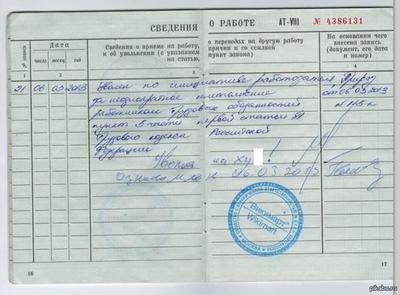 СВЕДЕНИЯ О РАБОТЕ АТ-VIII № 4386131
№ записи
Дата
число месяц год
Сведения о приеме на работу, о переводах на другую работу
и об увольнении (с указанием причин и со ссылкой
на статью, пункт закона)
На основании чего
внесена запись
(документ, его дата
и номер)
1 2 3 4
21 06 03 2013 по инициативе работодателя
от 06.03.2013
за неоднократное неисполнение
работником трудовых обязанностей
пункт 5 части первой статьи 81
Трудового кодекса Российской
Федерации
на ху !
06.03.2013
Викимарт
Wikimart
МОСКВА
16 17
pikabu.ru